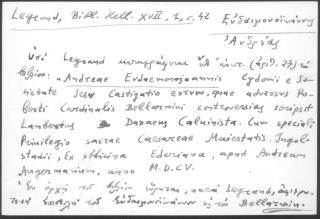 Legrand, Bibl. Hell. XVII, 1, σ. 42
Εὐδαιμονοϊωάννης
Ἀνδρέας
Ὑπὸ Legrand ὑπ' (ἀριθ. 27) τὸ
βιβλίον: «Andreae Evdaemonojoannis Cydonii e So-
cietate Jesv Castigatio eorvm, qvae adversvs Ro-
berti Cardinalis Bellarmini controversias scripsit
Lambertvs Danaevs Calvinista. Cum speciali
Privilegio sacrae Caesareae Maiestatis. Ingol-
stadii, Ex officina Ederiana, apud Andream
Angermarivm, anno M.D.CV.
Ἐν ἀρχῇ τοῦ βιβλίου κατὰ Legrand,
τοῦ Εὐδαιμονοϊωάννου Bellarmin.